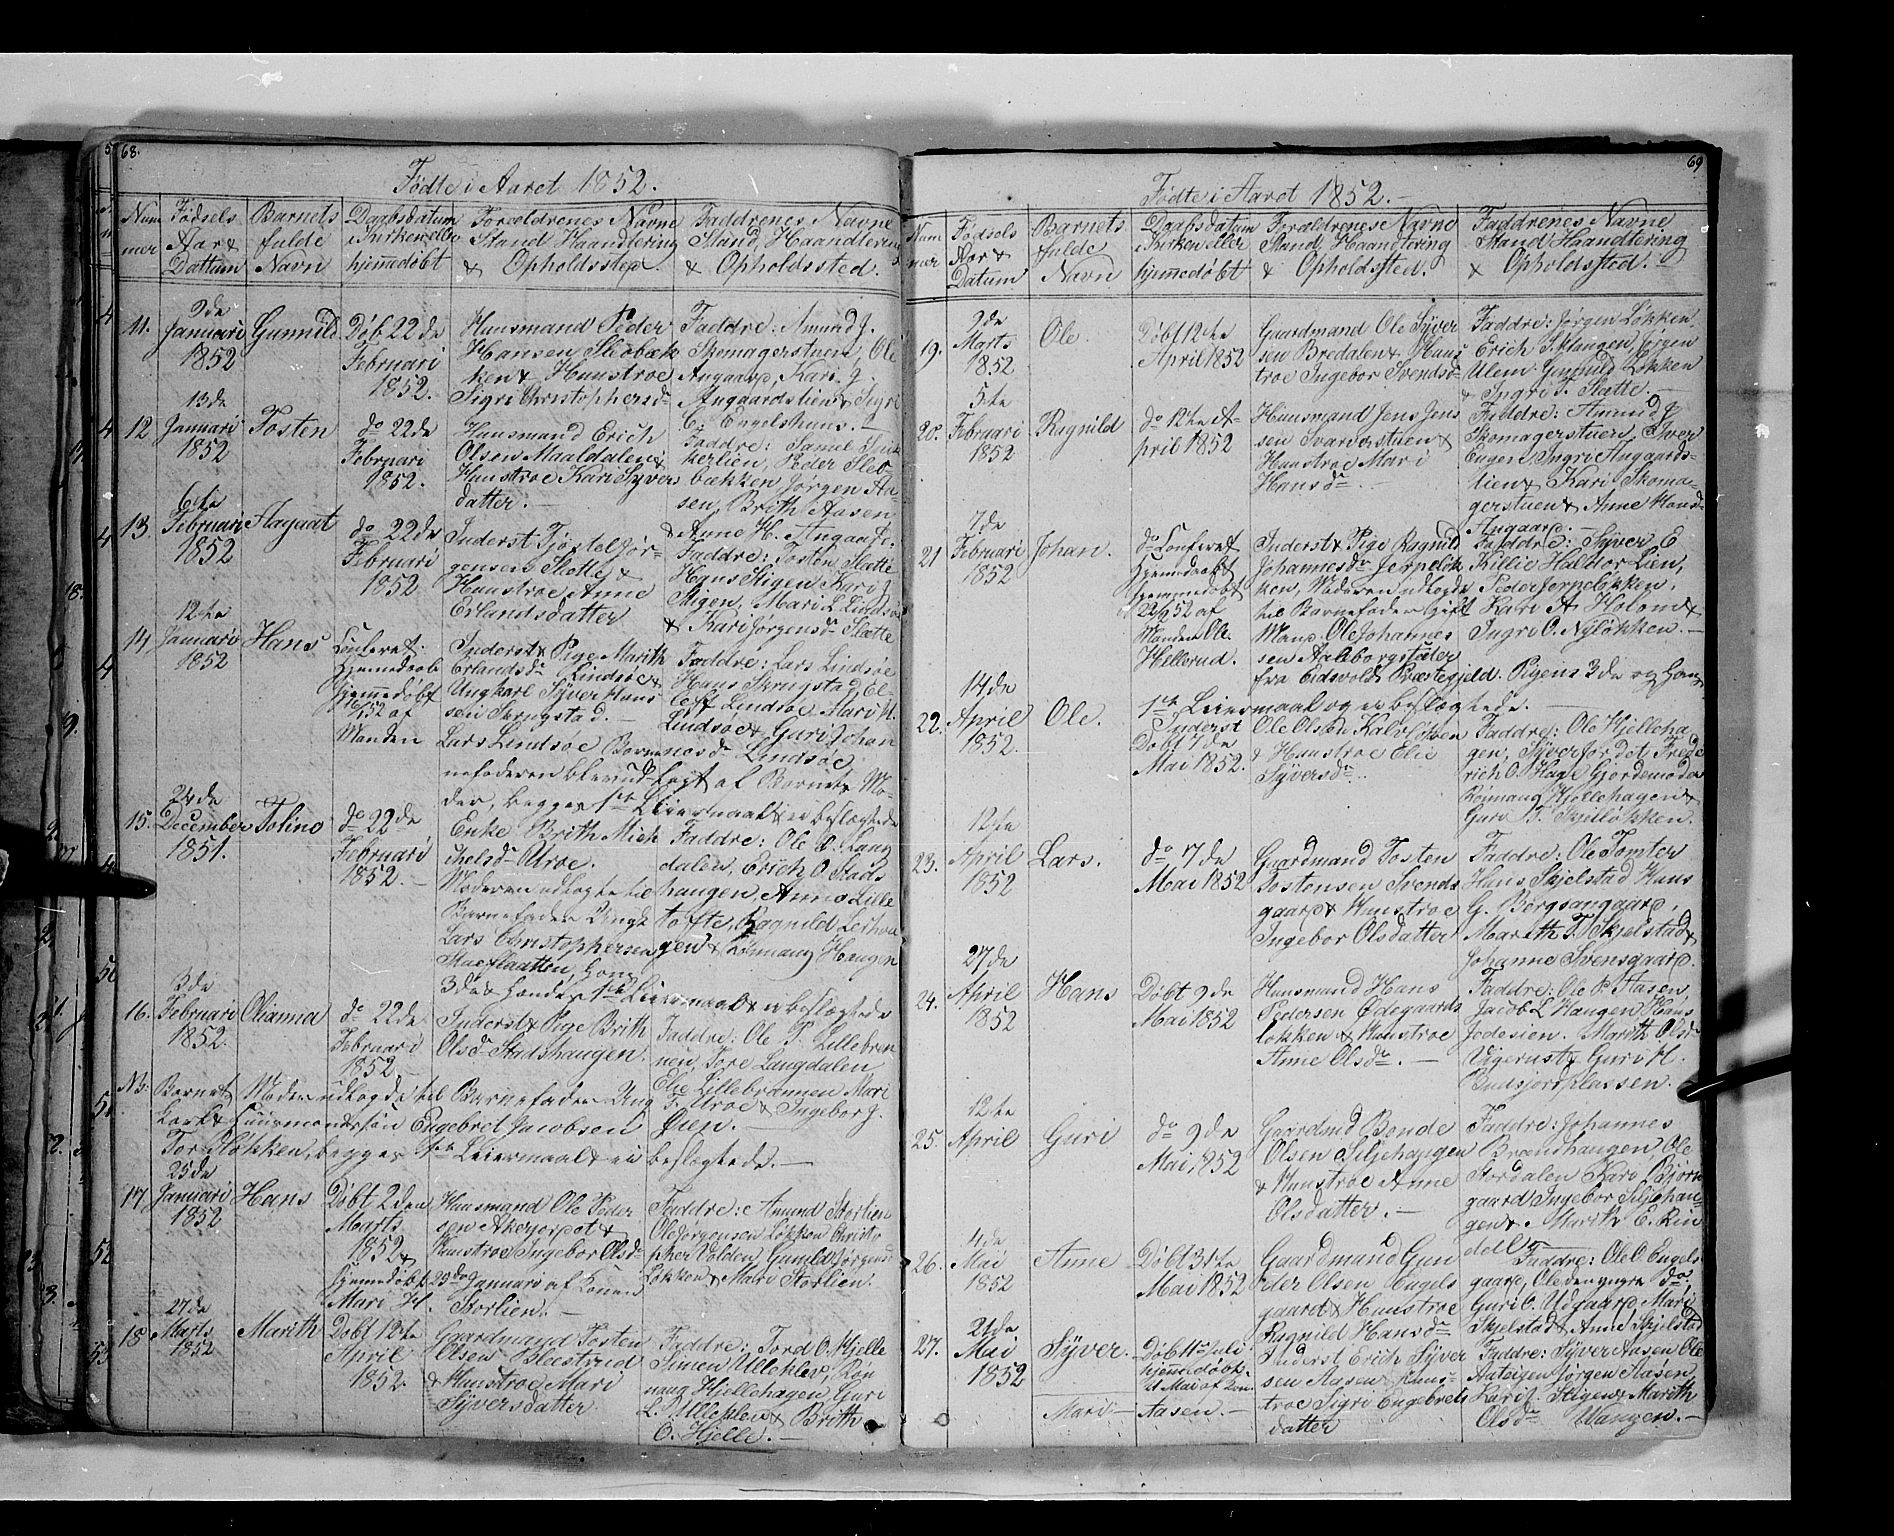 68.
Fødte i Aaret 1852.
Num mer
Fødsels Aar & Dattum
Barnets fulde Navn
Daabsdatum i Kirken eller hjemmedøbt
Forældrenes Navne Stand Haandtering & Opholdssted.
Faddrenes Navne Stand, Haandtering & Opholdssted.
11.
Januari
1852
Gunnild
Døb. 22de
Februari
1852.
Huusmand Peder
Hansen Slobæk
ken & Huustroe
Sigri Christophersdr
Faddre: Amund J.
Skomagerstuen, Ole
Angaard, Kari J.
Angaardslien & Sigri
C. Engelshuus.
12
13de
Januari
1852
Tosten
do 22de
Februari
1852.
Huusmand Erich
Olsen Maaldalen &
Huustroe Kari Syvers
datter.
Faddre:
kerlien, Peder Sleb
bækken Jørgen Aa
sen, Brith Aasen
& Anne H. Angaard.
13
6te
Februari
1852
do 22de
Februari
1852
Inderst Tjøstel Jør
gensen Slette &
Huustroe Anne
Erlandsdatter
Faddre: Tosten Slette
Hans Stigen Kari J
Stigen, Mari L. Lindsøe
& Kari Jørgensdr Slette
14,
12te
Januari
1852
Hans
Confereret:
Hjemmedaab
hjemmedøbt
af
Manden
Lars Lindsøe
Inderst & Pige Marith
Erlandsdr Lindsøe &
Ungkarl Syver Hans
sen Skrugstad.
Barne
nefaderen blev udlagt af Barnets Mo
der, begges 1ste Leiermaal & ei beslægtede
Faddre: Lars Lindsøe
Hans Skrugstad, El
leff Lindsøe, Mari M.
Lindsøe & Guri Johan
nesdr Lindsøe
15.
24de
December
1851.
Toline
do 22de
Februari
1852.
Enke Brith Mich
chelsdr Uroe.
Moderen udlagte til
Barnefader Ungk
Lars Christophersen
3die & hendes 1ste Leiermaal & ei beslægtede
Faddre: Ole O. Lang
dalen, Erich O. Stads
haugen, Anne Lille
tofte, Ragnild Lerhou
gen & Rønnaug Haugen
16.
3de
Februari
1852.
Olianna
do 22de
Februari
1852
Inderst & Pige Brith
Olsdr Stadshaugen.
Faddre: Ole P. Lillebren
nen, Tore Langdalen
Elie Lillebrænnen Mari
T. Uroe & Ingeborg J.
Øien.
Nb:
Barnets Moder udlagde til Barnefader Ung
karl & Huusmandssøn Engebret Jacobsen
Torsløkken, begges 1ste Leiermaal & ei beslægtede.
17.
25de
Januari
1852
Hans
Døbt 2den
Marts
1852 &
hjemmedøbt 25de Januari af Konen
Mari H. Storlien.
Huusmand Ole Peder
sen Akerjordet &
Huustroe Ingebor Olsdr
Faddre: Amund Storlien
Ole Jørgensen Løkken Christo
pher Volden, Gunild Jørgensdr
Løkken & Mari Storlien.
18
27de
Marts
1852
Marith
Døbt 12te
April
1852.
Gaardmand Tosten
Olsen Bleestrud
& Huustroe Mari
Syversdatter
Faddre: Tord O. Hjelle
Simen Ulleklev, Røn
naug Hjellehagen, Guri
L. Ulleklev & Brith
O. Hjelle.
69
Fødte i Aaret 1852.
Num mer
Fødsels Aar & Datum
Barnets fulde Navn
Daabsdatum i Kirken eller hjemmedøbt
Forældrenes Navne Stand Haandtering & Opholdssted.
Faddrenes Navne Stand Haandtering & Opholdssted.
19.
9de
Marts
1852
Ole.
Døbt 12te
April 1852
Gaardmand Ole Syver
sen Bredalen & Huus
troe Ingebor Svendsdr
Faddre: Jørgen Løkken
Erich Sklangen, Jørgen
Ulem Gunuld Løkken
& Ingri T. Slette.
20.
5te
Februari
1852
Ragnild
do 12te A
pril 1852
Huusmand Jens Jens
sen Svarverstuen &
Huustroe Mari
Hansdr.
Faddre: Amund J.
Skomagerstuen, Iver
Engen, Ingri Angaards
lien & Kari Skoma
gerstuen & Anne Hansdr
Angaard.
21
7de
Februari
1852
Johan.
do Confereret
Hjemmedaab
hjemmedøbt
af
Manden Ole
Hillerud.
Inderst & Pige Ragnild
Johannesdr Jerpeløk
ken, Moderen udlagde
til Barnefader Gift
Mand Ole Johannes
sen Aalborgsæter
fra Eidsvolds Præstegjeld. Pigens 3de og Hans
1ste Leiermaal og ei beslægtede.
Faddre: Syver E
Killie Halvor Lien,
Peder Jerpeløkken,
Kari A. Holom &
Ingri O. Nyløkken.
22.
14de
April
1852.
Ole.
Døbt 7de
Mai 1852.
Inderst Ole Olsen Kalvløkken
& Huustroe Elie
Syversdr.
Faddre: Ole Hjelleha
gen, Syver fordet, Frede
rich O. Hage Gjordemoder
Rønnaug Hjellehagen &
Guri T. Skjelløkken.
23.
12te
April
1852
Lars.
do 7de
Mai 1852
Gaardmand Tosten
Tostensen Svends
gaard & Huustroe
Ingebor Olsdatter
Faddre: Ole Tomter
Hans Skjelstad Hans
G. Borgsangaard,
Marith T. Skjelstad &
Johanne Svensgaard.
24.
27de
April
1852
Hans
Døbt 9de
Mai 1852
Huusmand Hans
Pedersen Ødegaards
løkken & Huustroe
Anne Olsdr.
Faddre: Ole P. Aasen,
Jacob L Haugen Hans
Jodesien. Marith Olsdr
Vigerust & Guri H.
Budsjordplassen.
25.
12te
April
Guri
do 9de
Mai, 1852
Gaardmd Bonde
Olsen Siljehaugen
& Huustroe Anne
Olsdatter.
Faddre: Johannes
Brændhaugen Ole
Stordalen Kari Bjørn
gaard Ingebor Siljehau
gen &. Marith E. Rin
ddl
26.
4de
Mai
1852
Anne
Døbt 31te
Mai 1852
Gaardmand Gun
der Olsen Engels
gaard & Huustroe
Ragnild Hansdr
Faddre: Ole O Engels
gaard, Ole den yngre do,
Guri O. Udgaard Mari E
Skjelstad & Anne Skjelstad
27.
21de
Mai
1852
Syver.
Døbt 11te Juli
hjemmedøbt
21 Mai af Kon.
Mari Aasen.
Inderst Erich Syver
sen Aasen & Huus
troe Sigri Engebrets
datter
Faddre: Syver Aasen Ole
Aateigen Jørgen Aasen,
Kari J. Stigen & Marith
Olsdr Wangen.